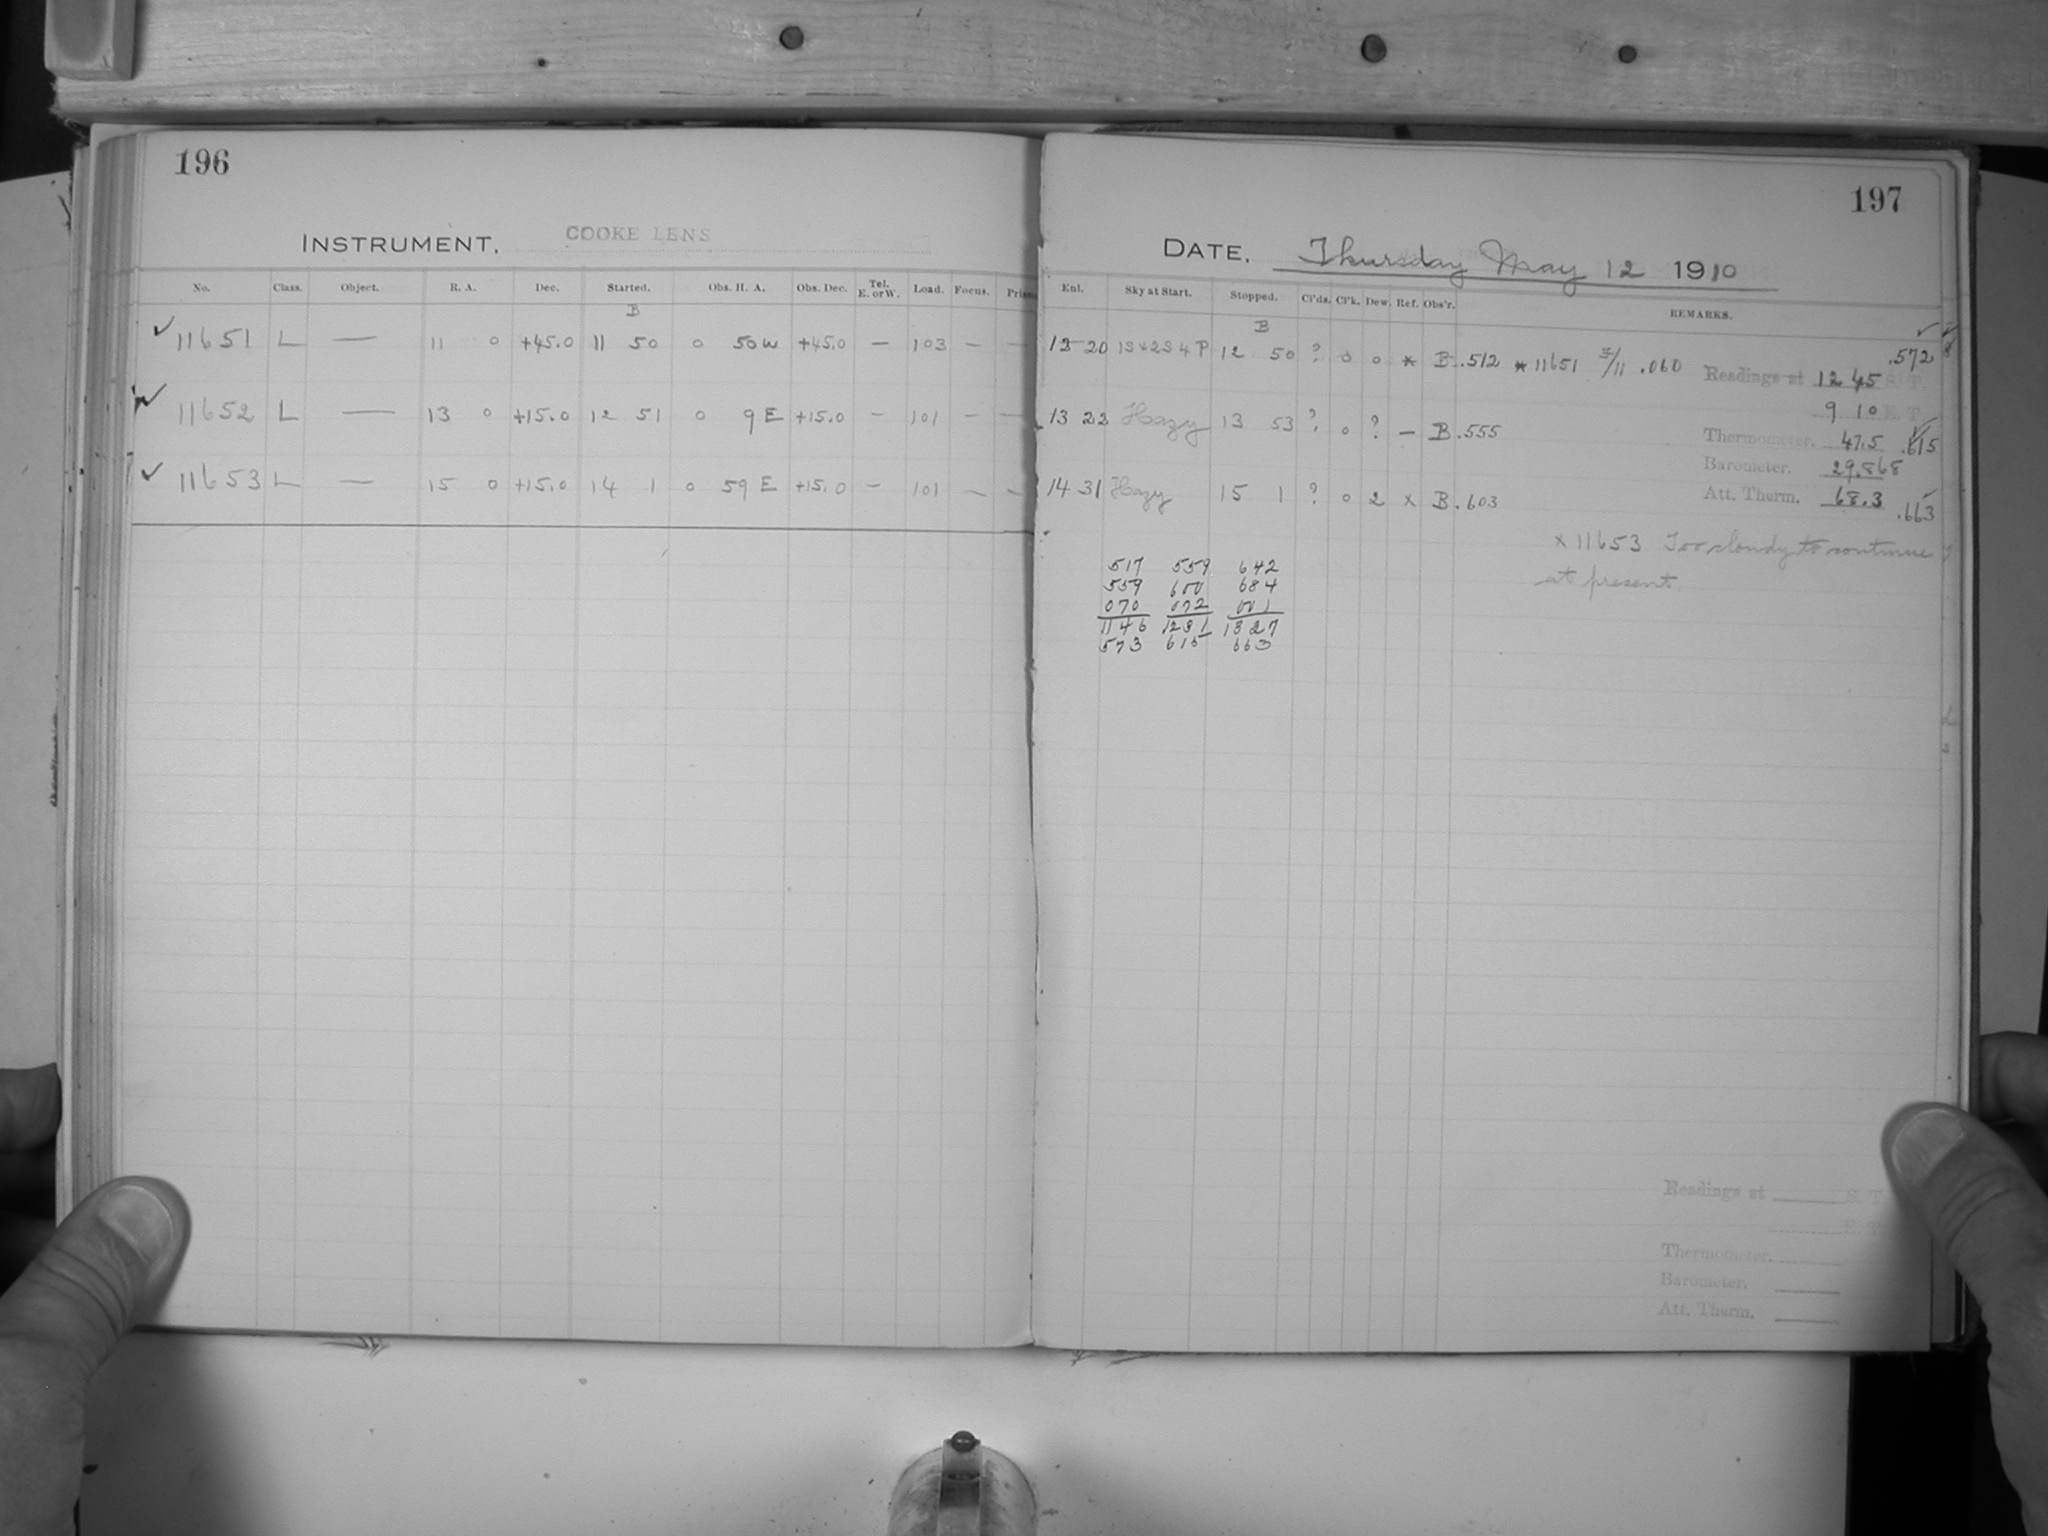 196
INSTRUMENT. COOKE LENS
No. Class. Object. R. A. Dec. Started. Obs. H. A. Obs. Dec. Tel. E. or W. Load. Focus. Prism
B
11651 L — 11 0 +45.0 11 50 0 50 W +45.0 — 103 — —
11652 L — 13 0 +15.0 12 51 0 9 E +15.0 — 101 — —
11653 L — 15 0 +15.0 14 1 0 59 E +15.0 — 101 — —
197
DATE. Thursday May 12 1910
Enl. Sky at Start. Stopped. Cl'ds. Cl'k. Dew. Ref. Obs'r. REMARKS.
B
13 20 12 50 ? 0 0 * B .512 * 11651 .060 .572
Readings at 12 45 S. T.
9 10 E. T.
13 22 Hazy 13 53 ? 0 ? — B .555
Thermometer. 47.5 .615
Barometer. 29.868
14 31 Hazy 15 1 ? 0 2 x B .603
Att. Therm. 68.3 .663
x 11653 Too cloudy to continue
at present
517 559 642
559 600 684
070 072 001
1146 1231 1327
573 615 663
Readings at S. T.
E. T.
Thermometer.
Barometer.
Att. Therm.